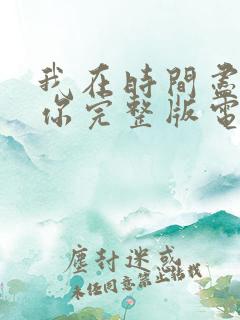 我在時間盡
你完整版電
塵封迷惑
未任同意禁止转载